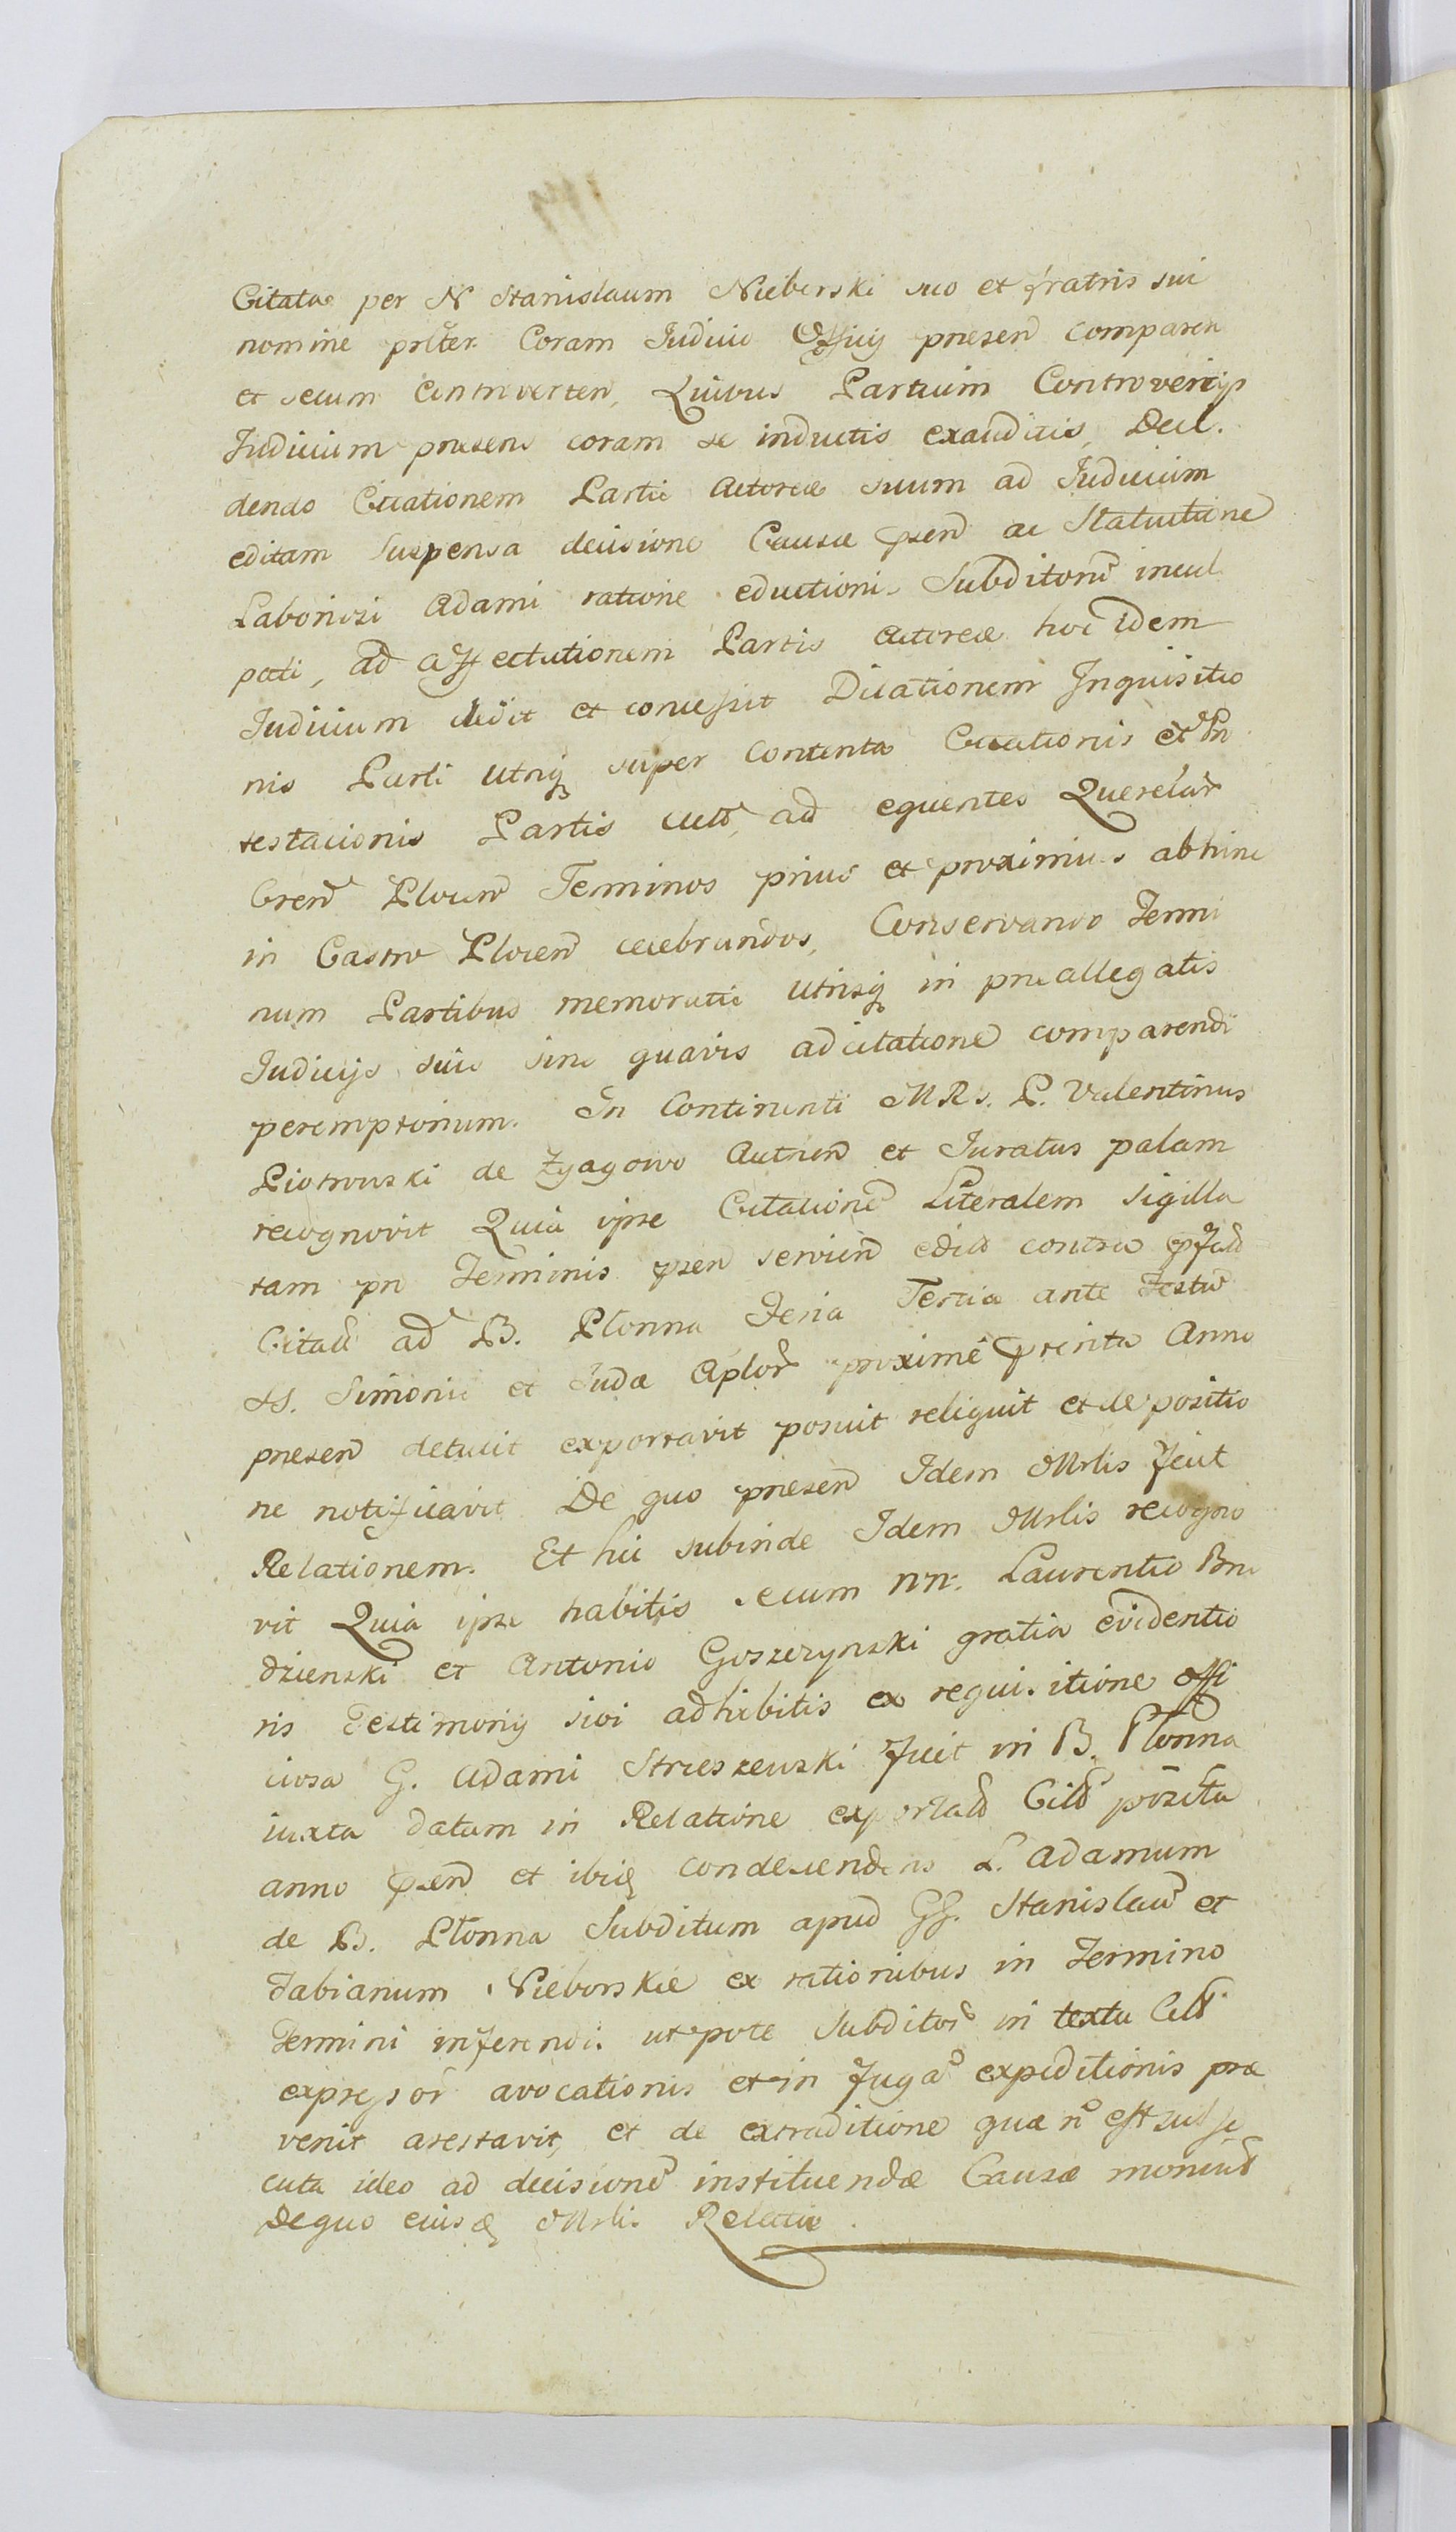 Citatae per N Stanislaum Nieborski suo et fratris sui
nomine prster Coram Iudicio Officij praesen comparen
et secum controverten, Quibus Partium Controversijs
Iudicium praesens coram se inductis exauditis, Decl.
dendo Citationem Partis Actoreae suum ad Iudicium
editam Suspensa decisione Causae psen ac Statuitione
Laboriosi Adami ratione eductionis Subditorũ incul
pati, ad affectationem Partis Actoreae hoc idem
Iudicium dedit et concessit Dilationem Inquisitio
nis Parti utriq super contenta Citationis et Pro
testacionis Partis citt, ad equentes Querelar
Gren Plocen Terminos prius et proximius abhinc
in Castro Plocen celebrandos, Conservando Termi
num Partibus memoratis utrisq in praeallegatis
Iudicijs suis sine quavis adcitatione comparendi
peremptorium. In Continenti MRs. P. Valentinus
Piotrowski de Zgagowo Autten et Iuratus palam
recognovit Quia ipse Citationẽ Literalem sigilla
tam pn Terminis psen servien edit contra pfatt
Citatt ad B. Płonna Feria Tertia ante Festũ
SS. Simonis et Iudae Aplor proxime pterita Anno
praesen detulit exportavit posuit reliquit et depositio
ne notificavit De quo praesen Idem Mrlis fecit
Relationem. Et hic subinde Idem Mrlis recogno
vit Quia ipse habitis secum NN. Laurentio Bru
dzienski et Antonio Goszczynski gratia evidentio
ris Testimonij sivi adhibitis ex requisitione offi
ciosa G. Adami Strzeszewski fuit in B. Płonna
iuxta datum in Relatione exportatt Citt pozita
anno psen et ibiq condescendens L. Adamum
de B. Płonna Subditum apud GG. Stanislaũ et
Fabianum Nieborskie ex rationibus in Termino
Termini inferendis utpote Subditor in textu Citt
expressor avocationis et in fuga expeditionis prae
venit arestavit, et de extraditione quae n est subse
cuta ideo ad decisionẽ instituendae Causae
Dequo eiusq Mrlis Relatio.